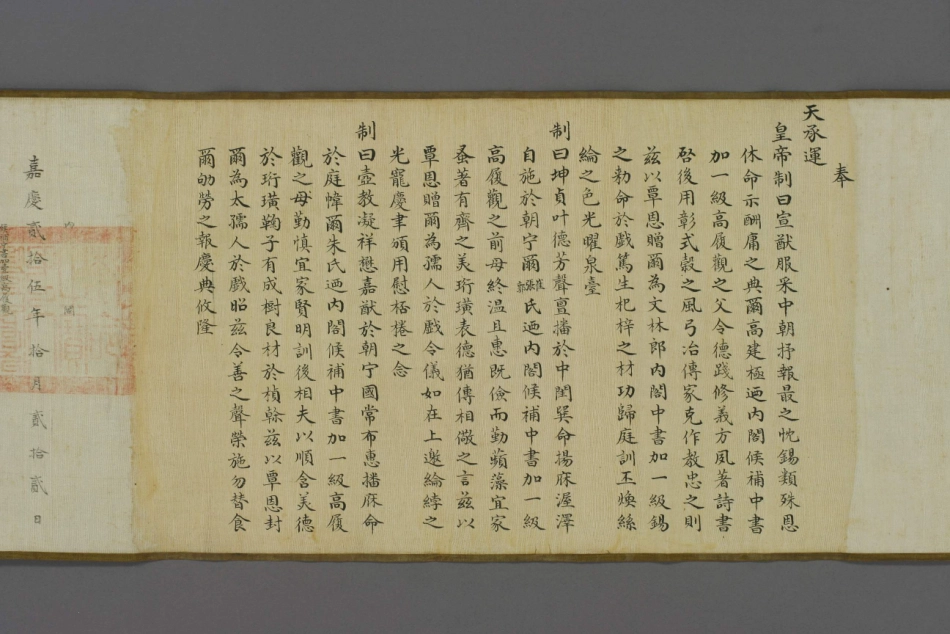 奉
天承運
皇帝制曰宣猷服采中朝抒報最之忱錫類殊恩
休命示酬庸之典爾高建極迺內閣候補中書
加一級高履觀之父令德踐修義方夙著詩書
啓後用彰式穀之風弓冶傳家克作教忠之則
茲以覃恩贈爾為文林郎內閣中書加一級錫
之勅命於戲篤生杞梓之材功歸庭訓丕煥絲
綸之色光曜泉臺
制曰坤貞叶德芳聲亶播於中閨巽命揚庥渥澤
自施於朝宁爾崔張鄭氏迺內閣候補中書加一級
高履觀之前母終溫且惠既儉而勤蘋藻宜家
蚤著有齊之美珩璜表德猶傳相儆之言茲以
覃恩贈爾為孺人於戲令儀如在上邀綸綍之
光寵慶聿頒用慰桮棬之念
制曰壺教凝祥懋嘉猷於朝宁國常布惠播庥命
於庭幃爾朱氏迺內閣候補中書加一級高履
觀之母勤慎宜家賢明訓後相夫以順含美德
於珩璜鞠子有成樹良材於楨榦茲以覃恩封
爾為太孺人於戲昭茲令善之聲榮施勿替食
爾劬勞之報慶典攸隆
嘉慶貳拾伍年拾月貳拾貳日